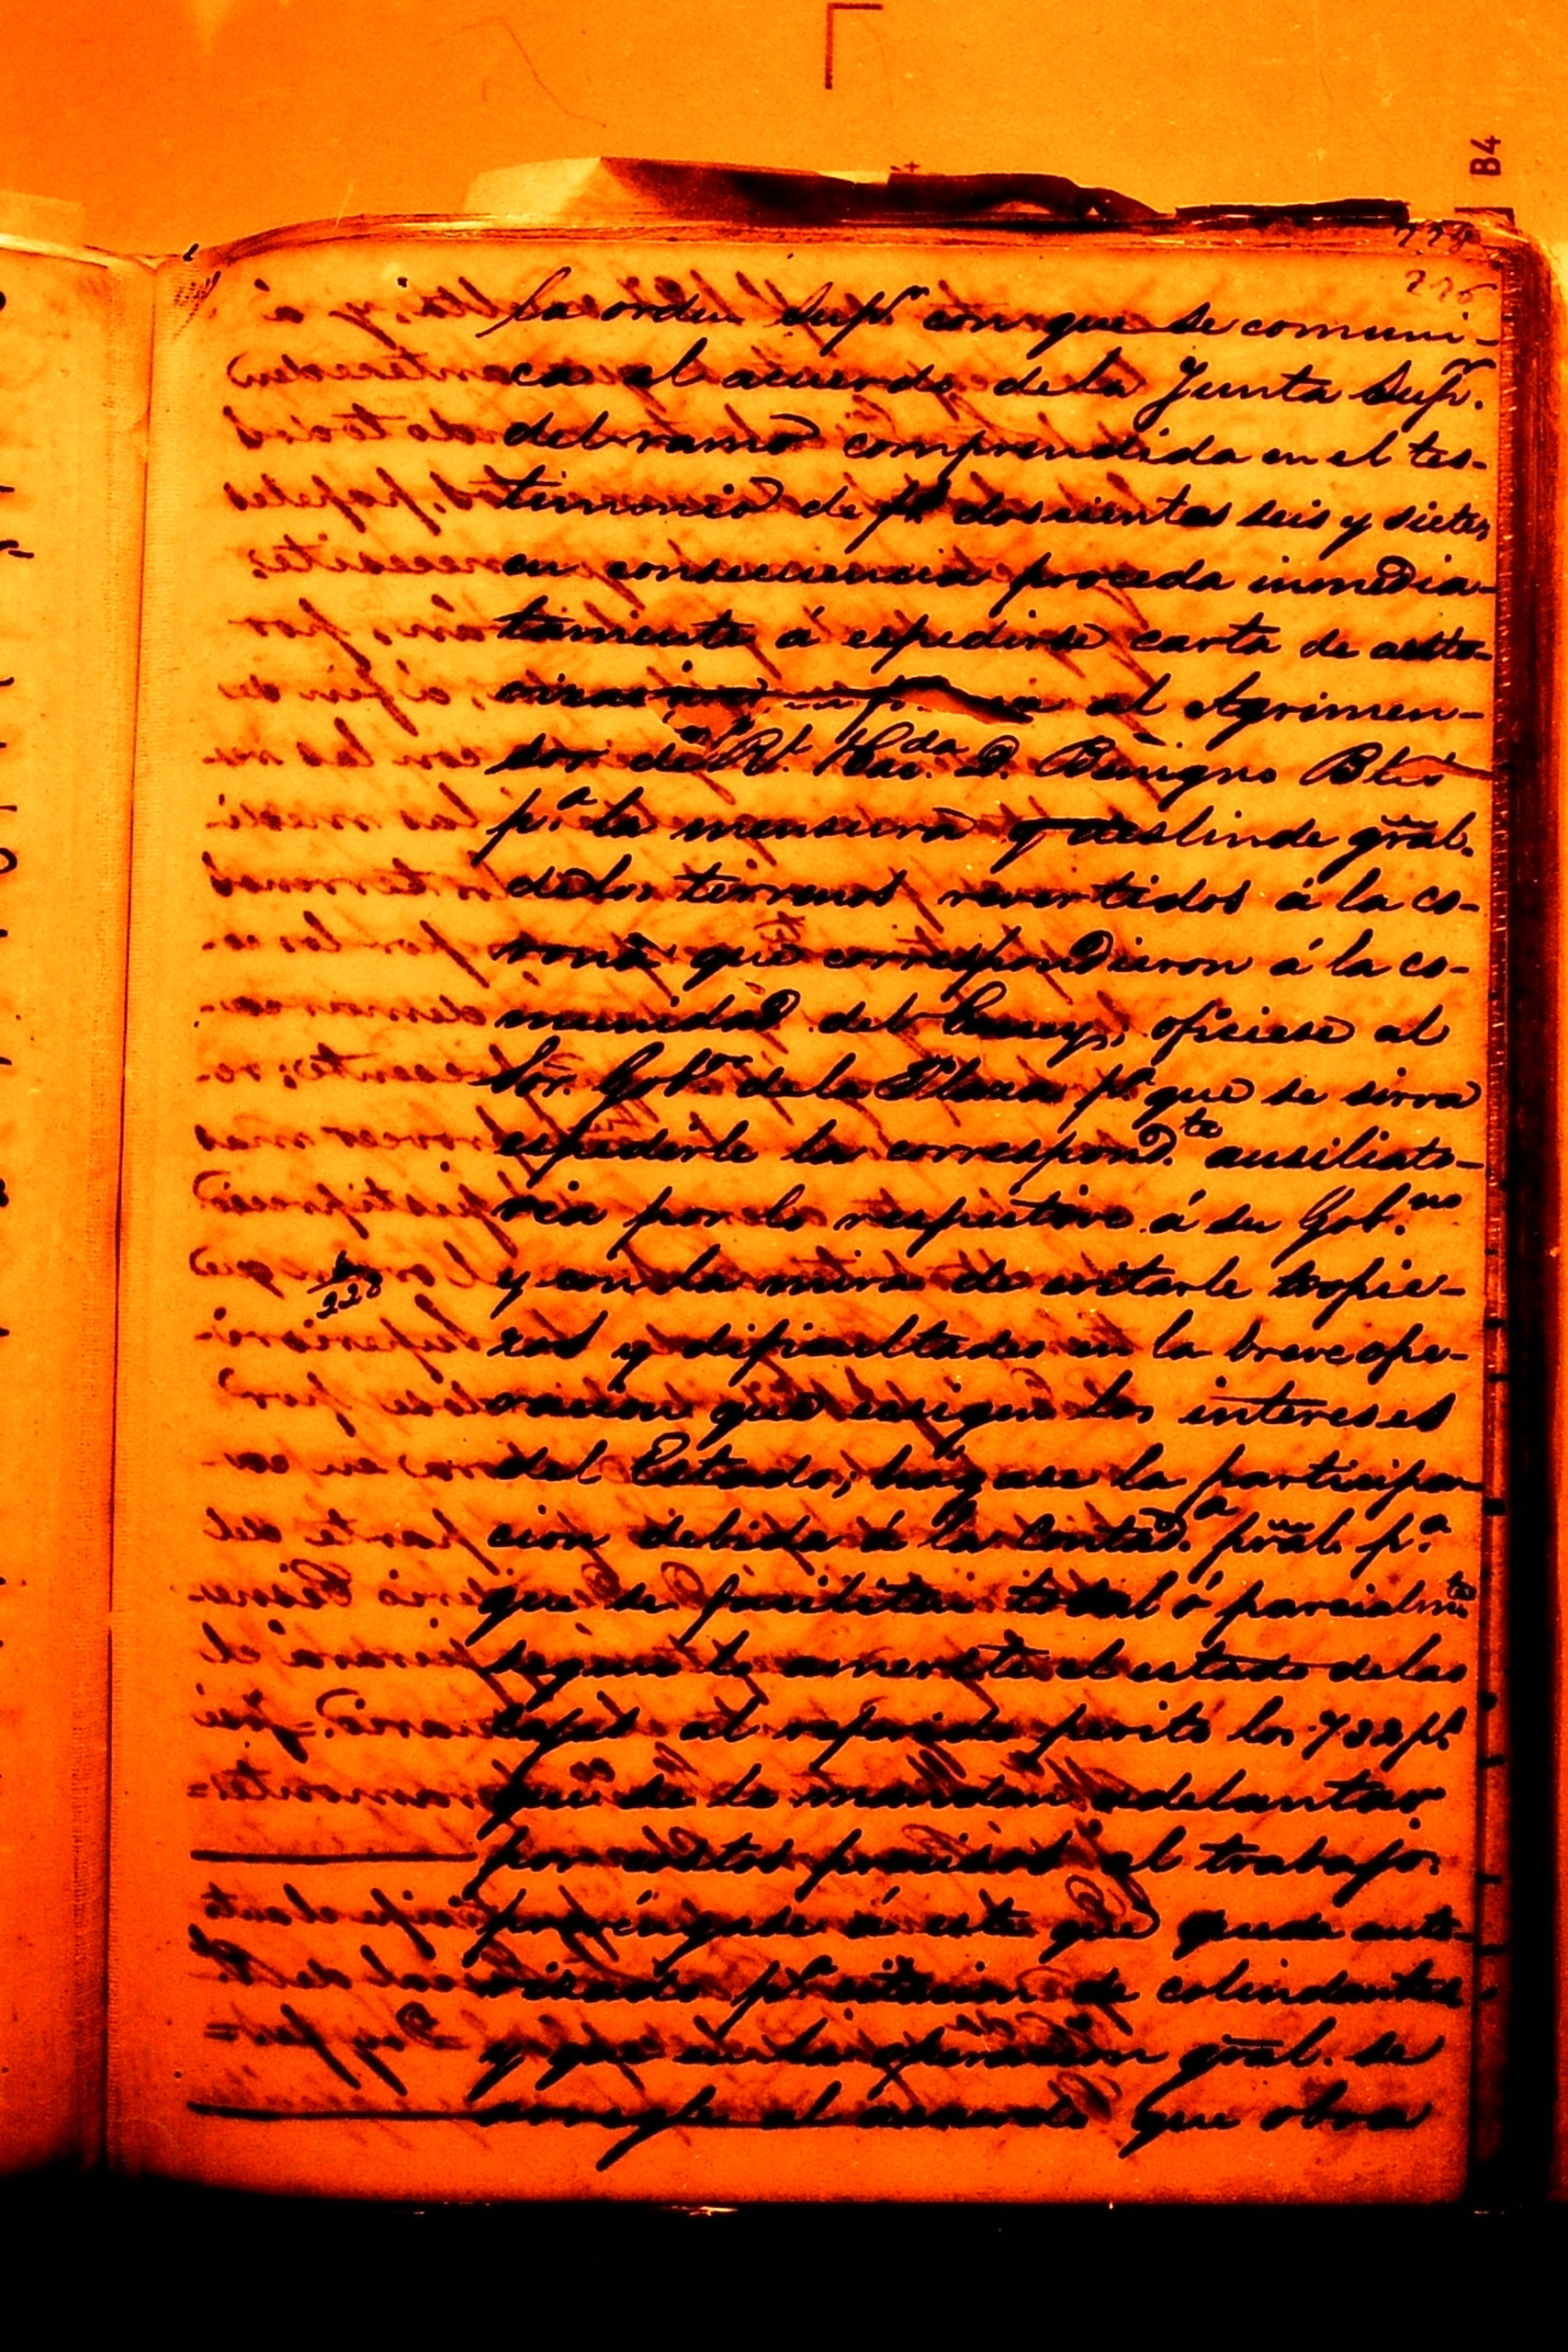 B4
226
la orden Supr. con que se comuni-
ca el acuerdo de la Junta Supr.
del ramo comprendida en el tes-
timonio de fs. doscientos seis y siete,
en consecuencia proceda inmedia-
tamente á espedirse carta de auto-
al Agrimen-
sor de Rl. Hacda. D. Benigno
pa. la mensura y deslinde gral.
de los terrenos revertidos á la co-
rona que correspondieron á la co-
munidad del Caney, oficiese al
Sor. Gobor. de la Plaza pa. que se sirva
espedirle la correspondte. ausiliato-
ria por lo respective á su Gobno.
y con la mira de evitarle tropie-
220
zos y dificultades en la breve ope-
racion que esigen los intereses
del Estado; hágase la participa-
cion debida á la Contada. pral. pa.
que se faciliten total ó parcialmte.
segun lo el estado de las
cajas al referido perito los 722 ps.
que se le mandan adelantar
por costos precisos al trabajo:
prevengase á este que queda auto-
rizado pa. citacion de colindantes
y que en la operacion gral. se
arregle al acuerdo que obra